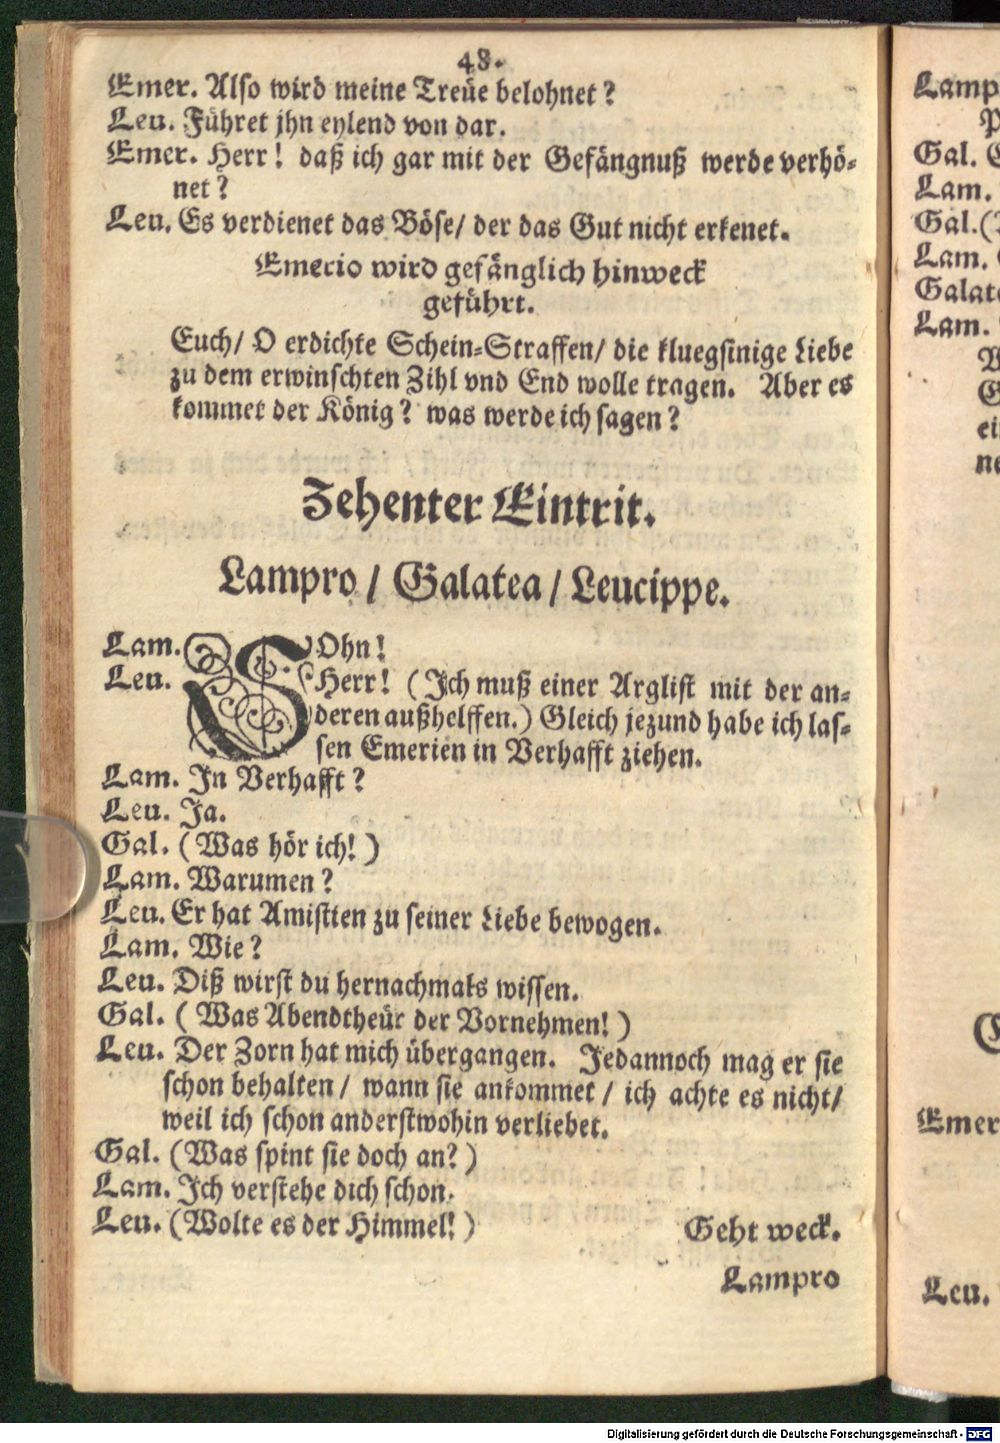 48.
Emer. Also wird meine Treüe belohnet?
Leu. Führet jhn eylend von dar.
Emer. Herr! daß ich gar mit der Gefängnuß werde verhö-
net?
Leu. Es verdienet das Böse/ der das Gut nicht erkenet.
Emerio wird gefänglich hinweck
geführt.
Euch/ O erdichte Schein-Straffen/ die kluegsinige Liebe
zu dem erwinschten Zihl vnd End wolle tragen. Aber es
kommet der König? was werde ich sagen?
Zehenter Eintrit.
Lampro / Galatea / Leucippe.
Lam. SOhn!
Leu. Herr! (Ich muß einer Arglist mit der an-
deren außhelffen.) Gleich jezund habe ich las-
sen Emerien in Verhafft ziehen.
Lam. In Verhafft?
Leu. Ja.
Gal. (Was hör ich!)
Lam. Warumen?
Leu. Er hat Amistien zu seiner Liebe bewogen.
Lam. Wie?
Leu. Diß wirst du hernachmals wissen.
Gal. (Was Abendtheür der Vornehmen!)
Leu. Der Zorn hat mich übergangen. Jedannoch mag er sie
schon behalten / wann sie ankommet / ich achte es nicht/
weil ich schon anderstwohin verliebet.
Gal. (Was spint sie doch an?)
Lam. Ich verstehe dich schon.
Leu. (Wolte es der Himmel!) Geht weck.
Lampro
Gal.
Lam.
Gal.
Lam.
Lam.
Emer
Leu.
Digitalisierung gefördert durch die Deutsche Forschungsgemeinschaft - DFG